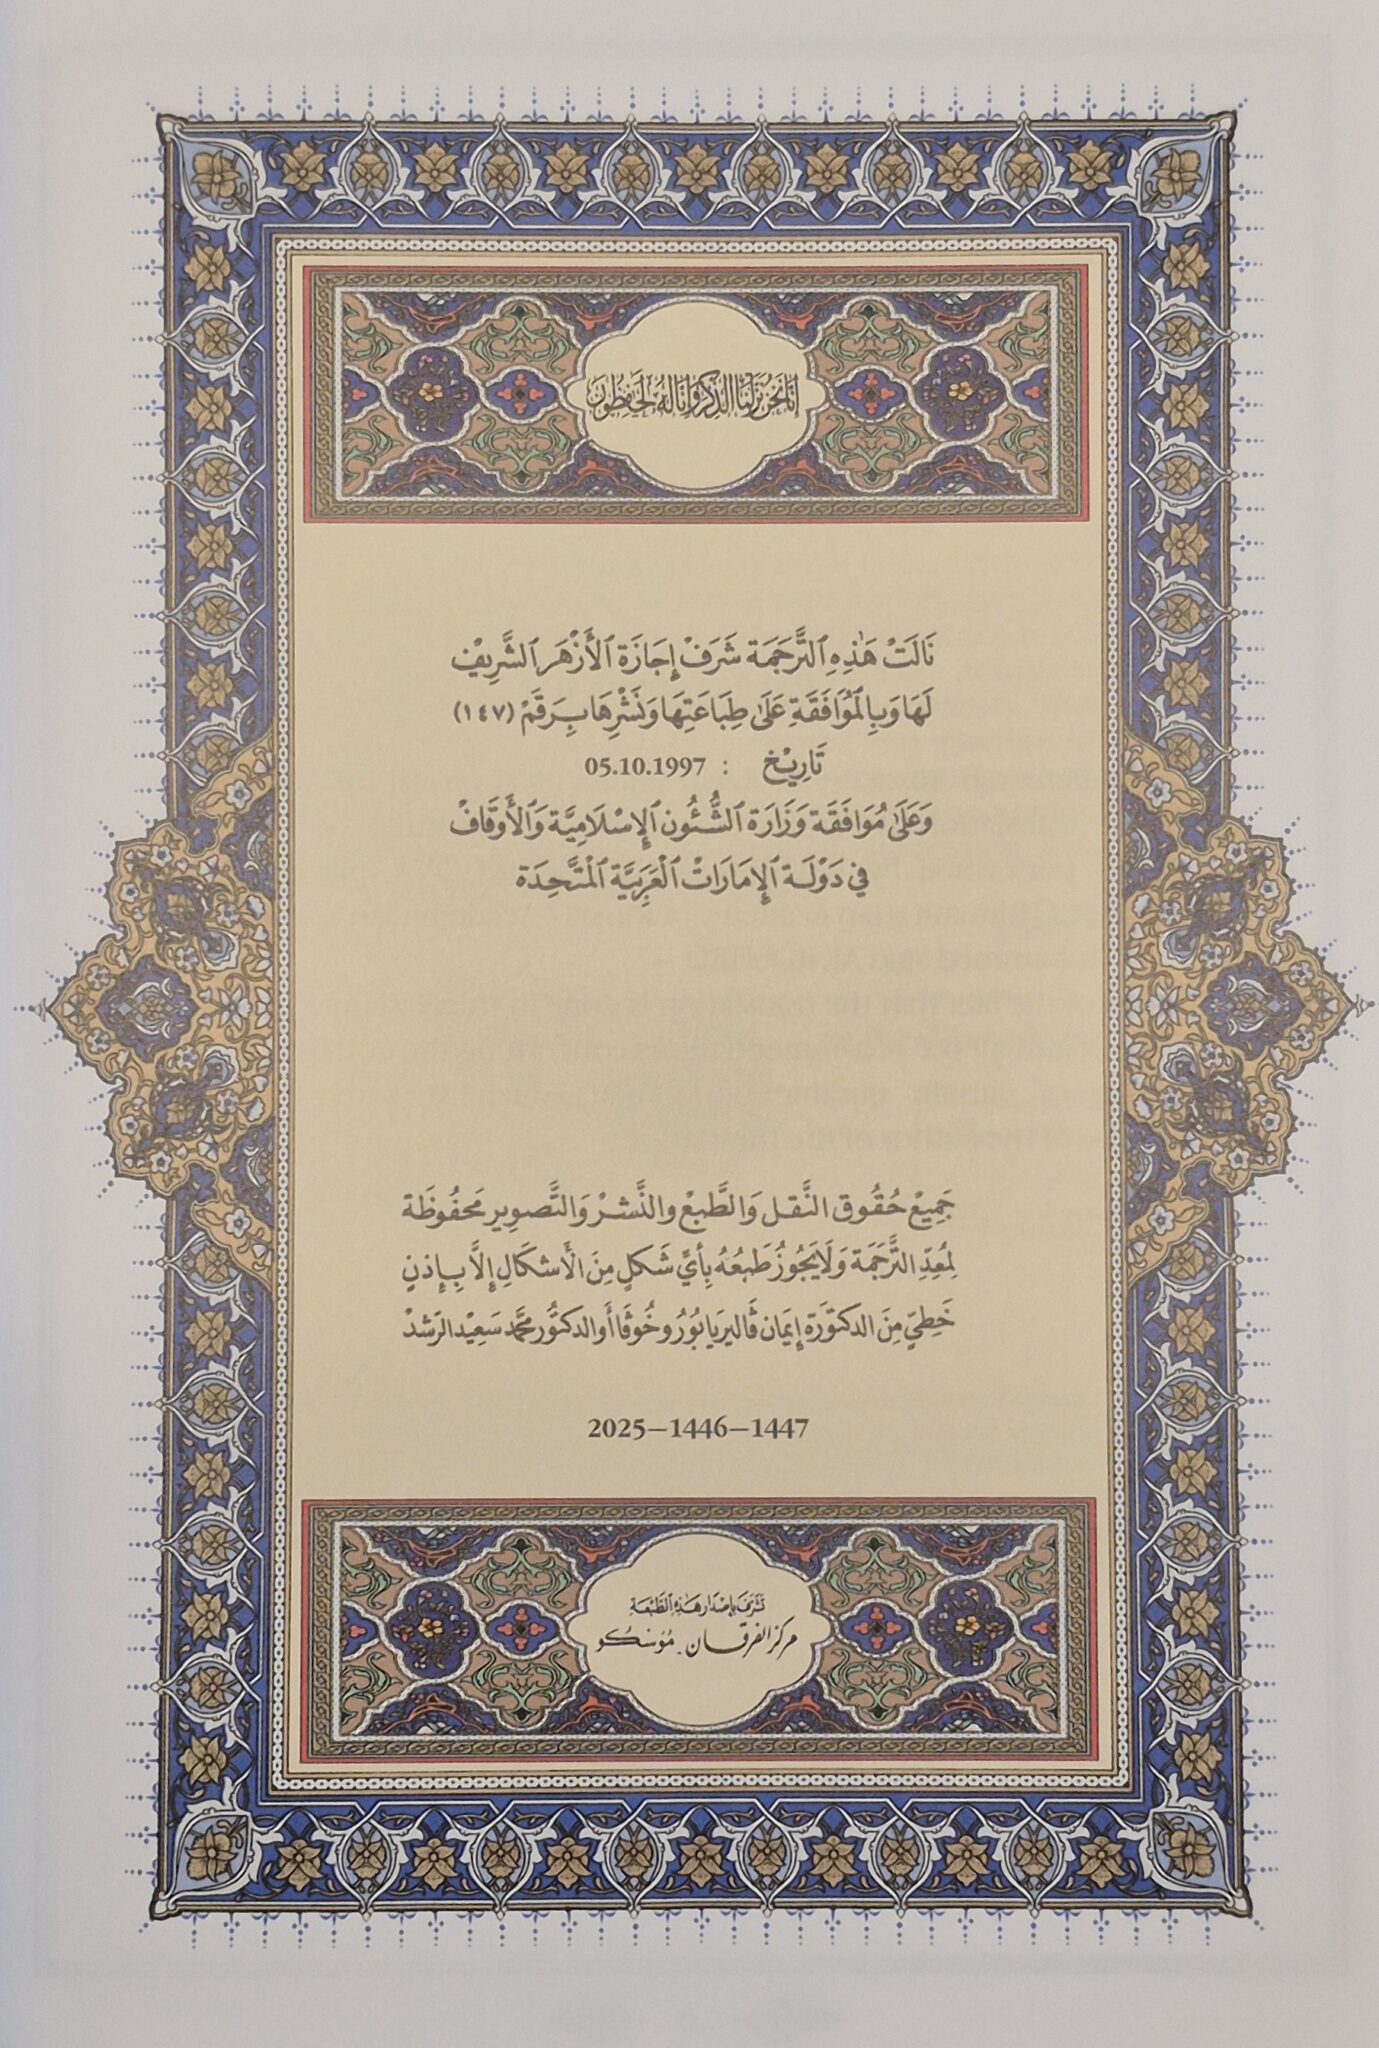 إِنَّا نَحْنُ نَزَّلْنَا الذِّكْرَ وَإِنَّا لَهُ لَحَافِظُونَ
نَالَتْ هَٰذِهِ ٱلتَّرْجَمَة شَرَفْ إِجَازَة ٱلْأَزْهَر ٱلشَّرِيفْ
لَهَا وَبِالْمُوَافَقَةِ عَلَىٰ طِبَاعَتِهَا وَنَشْرِهَا بِرَقَمْ (١٤٧)
تَارِيْخ : 05.10.1997
وَعَلَىٰ مُوَافَقَة وَزَارَة ٱلشُّئُون ٱلْإِسْلَامِيَّة وَٱلْأَوْقَافْ
فِي دَوْلَة ٱلْإِمَارَاتْ ٱلْعَرَبِيَّة ٱلْمُتَّحِدَة
جَمِيْعْ حُقُوق النَّقل وَالطَّبعْ والنَّشرْ وَالتَّصوِير مَحفُوظَة
لِمُعِدِّ التَّرجَمَة وَلَا يَجُوزُ طَبعُهُ بِأيِّ شَكلٍ مِنَ الْأَشكَالِ إِلَّا بِإِذنٍ
خَطِيٍّ مِنَ الدكتوُرَة إِيمَان ڤَاليريَا بُورُوخُوڤَا أَو الدكتُور محمَّد سَعِيْد الرَشدْ
2025–1446–1447
تَشَرَّفَ بِإِصْدَار هَٰذِهِ الطَّبْعَة
مركز الفرقان - مُوسْكُو